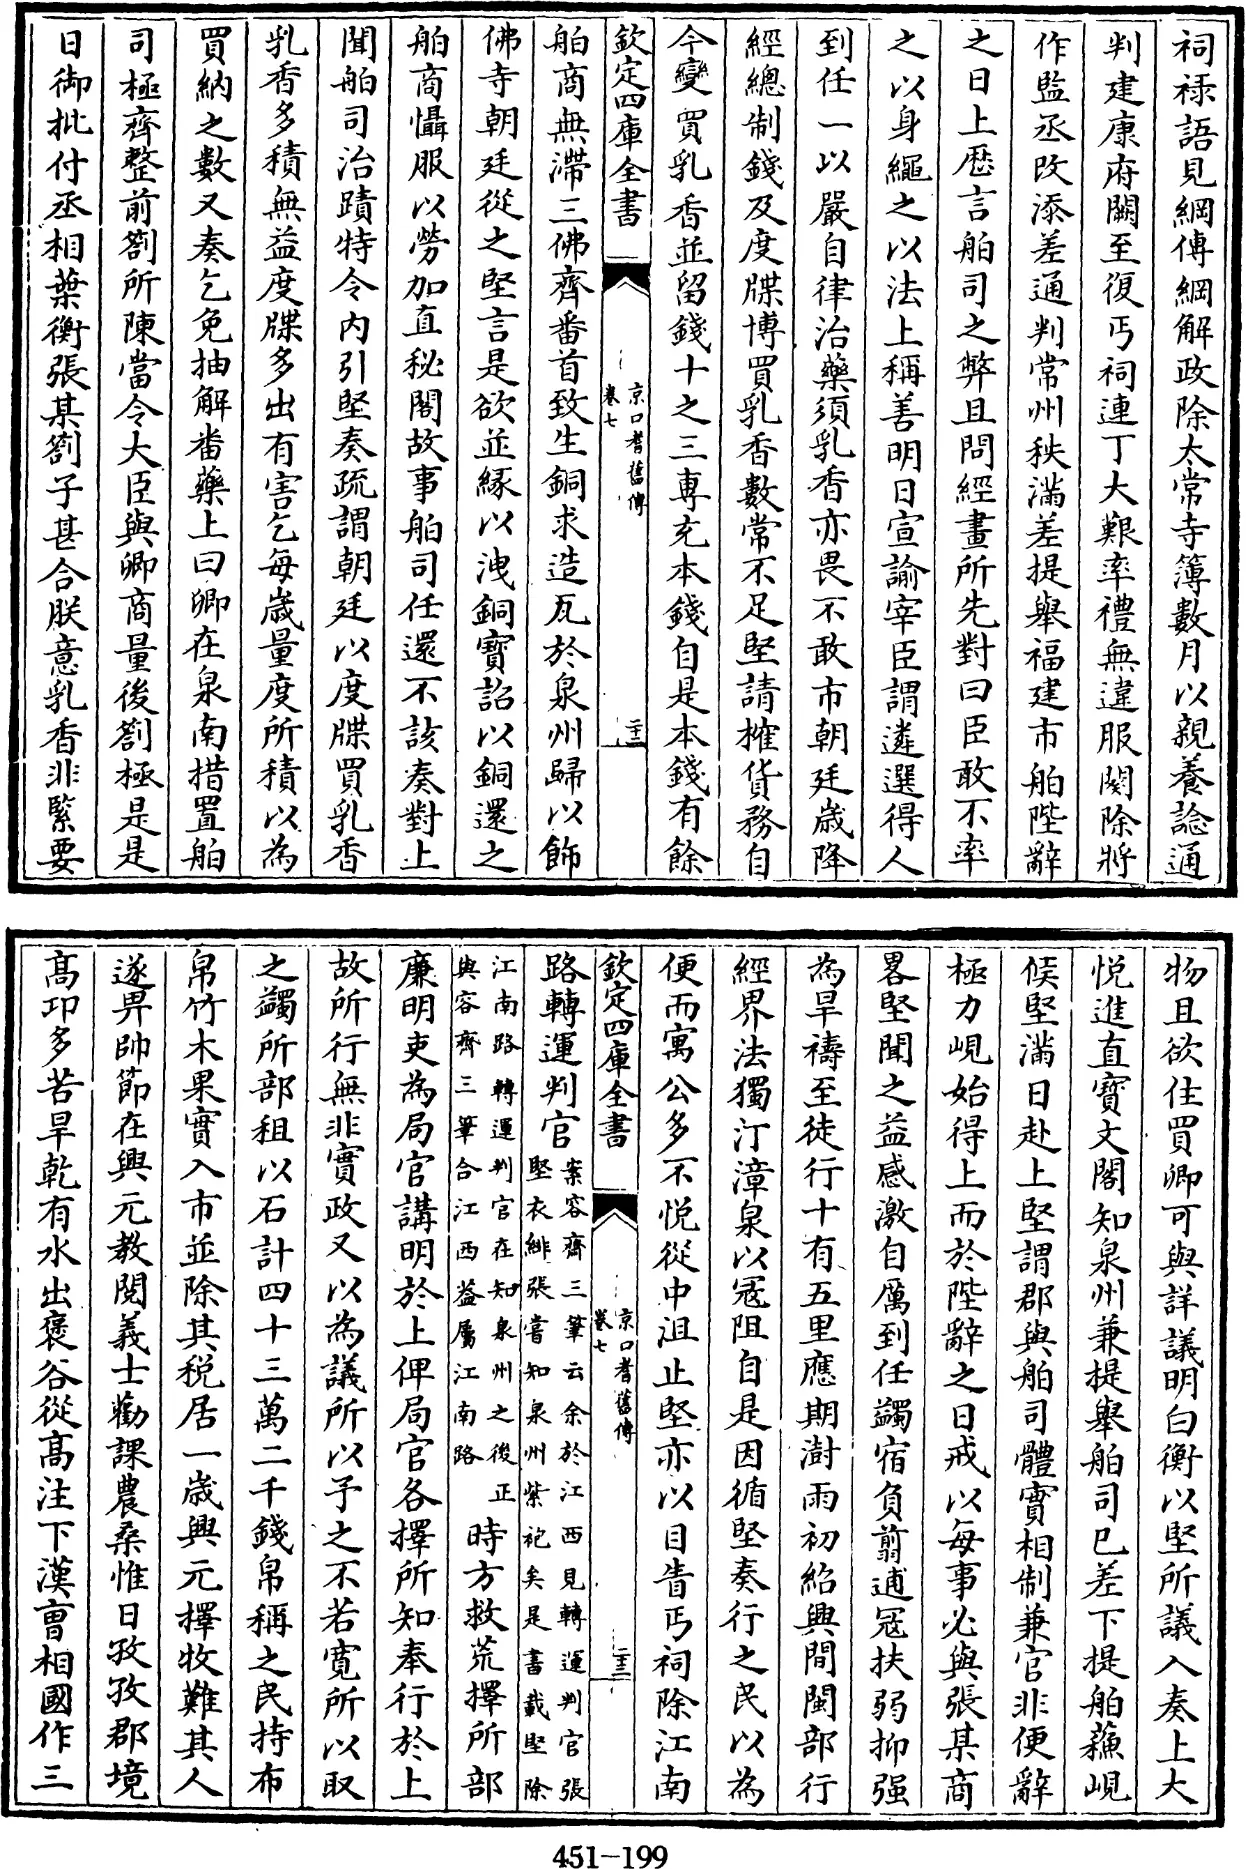 祠祿語見綱傳綱解政除太常寺簿數月以親養諗通
判建康府闕至復丐祠連丁大艱率禮無違服闋除將
作監丞改添差通判常州秩滿差提舉福建市舶陛辭
之日上歷言舶司之弊且問經畫所先對曰臣敢不率
之以身繩之以法上稱善明日宣諭宰臣謂遴選得人
到任一以嚴自律治藥須乳香亦畏不敢市朝廷歲降
經總制錢及度牒博買乳香數常不足堅請榷貨務自
今變買乳香並留錢十之三專充本錢自是本錢有餘
欽定四庫全書
京口耆舊傳
卷七
二十二
舶商無滯三佛齊番首致生銅求造瓦於泉州歸以飾
佛寺朝廷從之堅言是欲並緣以洩銅寶詔以銅還之
舶商懾服以勞加直秘閣故事舶司任還不該奏對上
聞舶司治蹟特令內引堅奏疏謂朝廷以度牒買乳香
乳香多積無益度牒多出有害乞每歲量度所積以為
買納之數又奏乞免抽解畨藥上曰卿在泉南措置舶
司極齊整前劄所陳當令大臣與卿商量後劄極是是
日御批付丞相葉衡張某劄子甚合朕意乳香非緊要
物且欲住買卿可與詳議明白衡以堅所議入奏上大
悅進直寶文閣知泉州兼提舉舶司已差下提舶蘓峴
候堅滿日赴上堅謂郡與舶司體實相制兼官非便辭
極力峴始得上而於陛辭之日戒以每事必與張某商
畧堅聞之益感激自厲到任蠲宿負翦逋寇扶弱抑强
為旱禱至徒行十有五里應期澍雨初紹興間閩部行
經界法獨汀漳泉以寇阻自是因循堅奏行之民以為
便而寓公多不悅從中沮止堅亦以目眚丐祠除江南
欽定四庫全書
京口耆舊傳
卷七
二十三
路轉運判官案容齋三筆云余於江西見轉運判官張
堅衣緋張嘗知泉州紫袍矣是書載堅除
江南路轉運判官在知泉州之後正
與容齋三筆合江西益屬江南路時方救荒擇所部
廉明吏為局官講明於上俾局官各擇所知奉行於上
故所行無非實政又以為議所以予之不若寬所以取
之蠲所部租以石計四十三萬二千錢帛稱之民持布
帛竹木果實入市並除其税居一歲興元擇牧難其人
遂畀帥節在興元教閱義士勸課農桑惟日孜孜郡境
髙卬多苦旱乾有水出褒谷從髙注下漢㑹相國作三
451-199